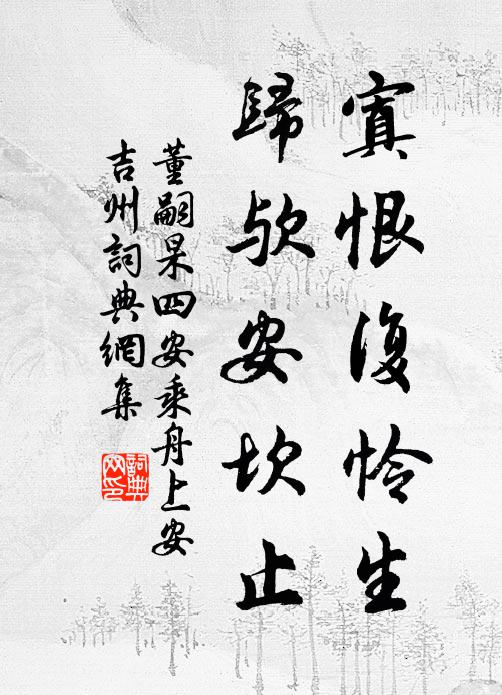 寘恨復怜生
歸欤安坎止
董嗣杲四安乘舟上安
吉州詞典網集
詞典
网印